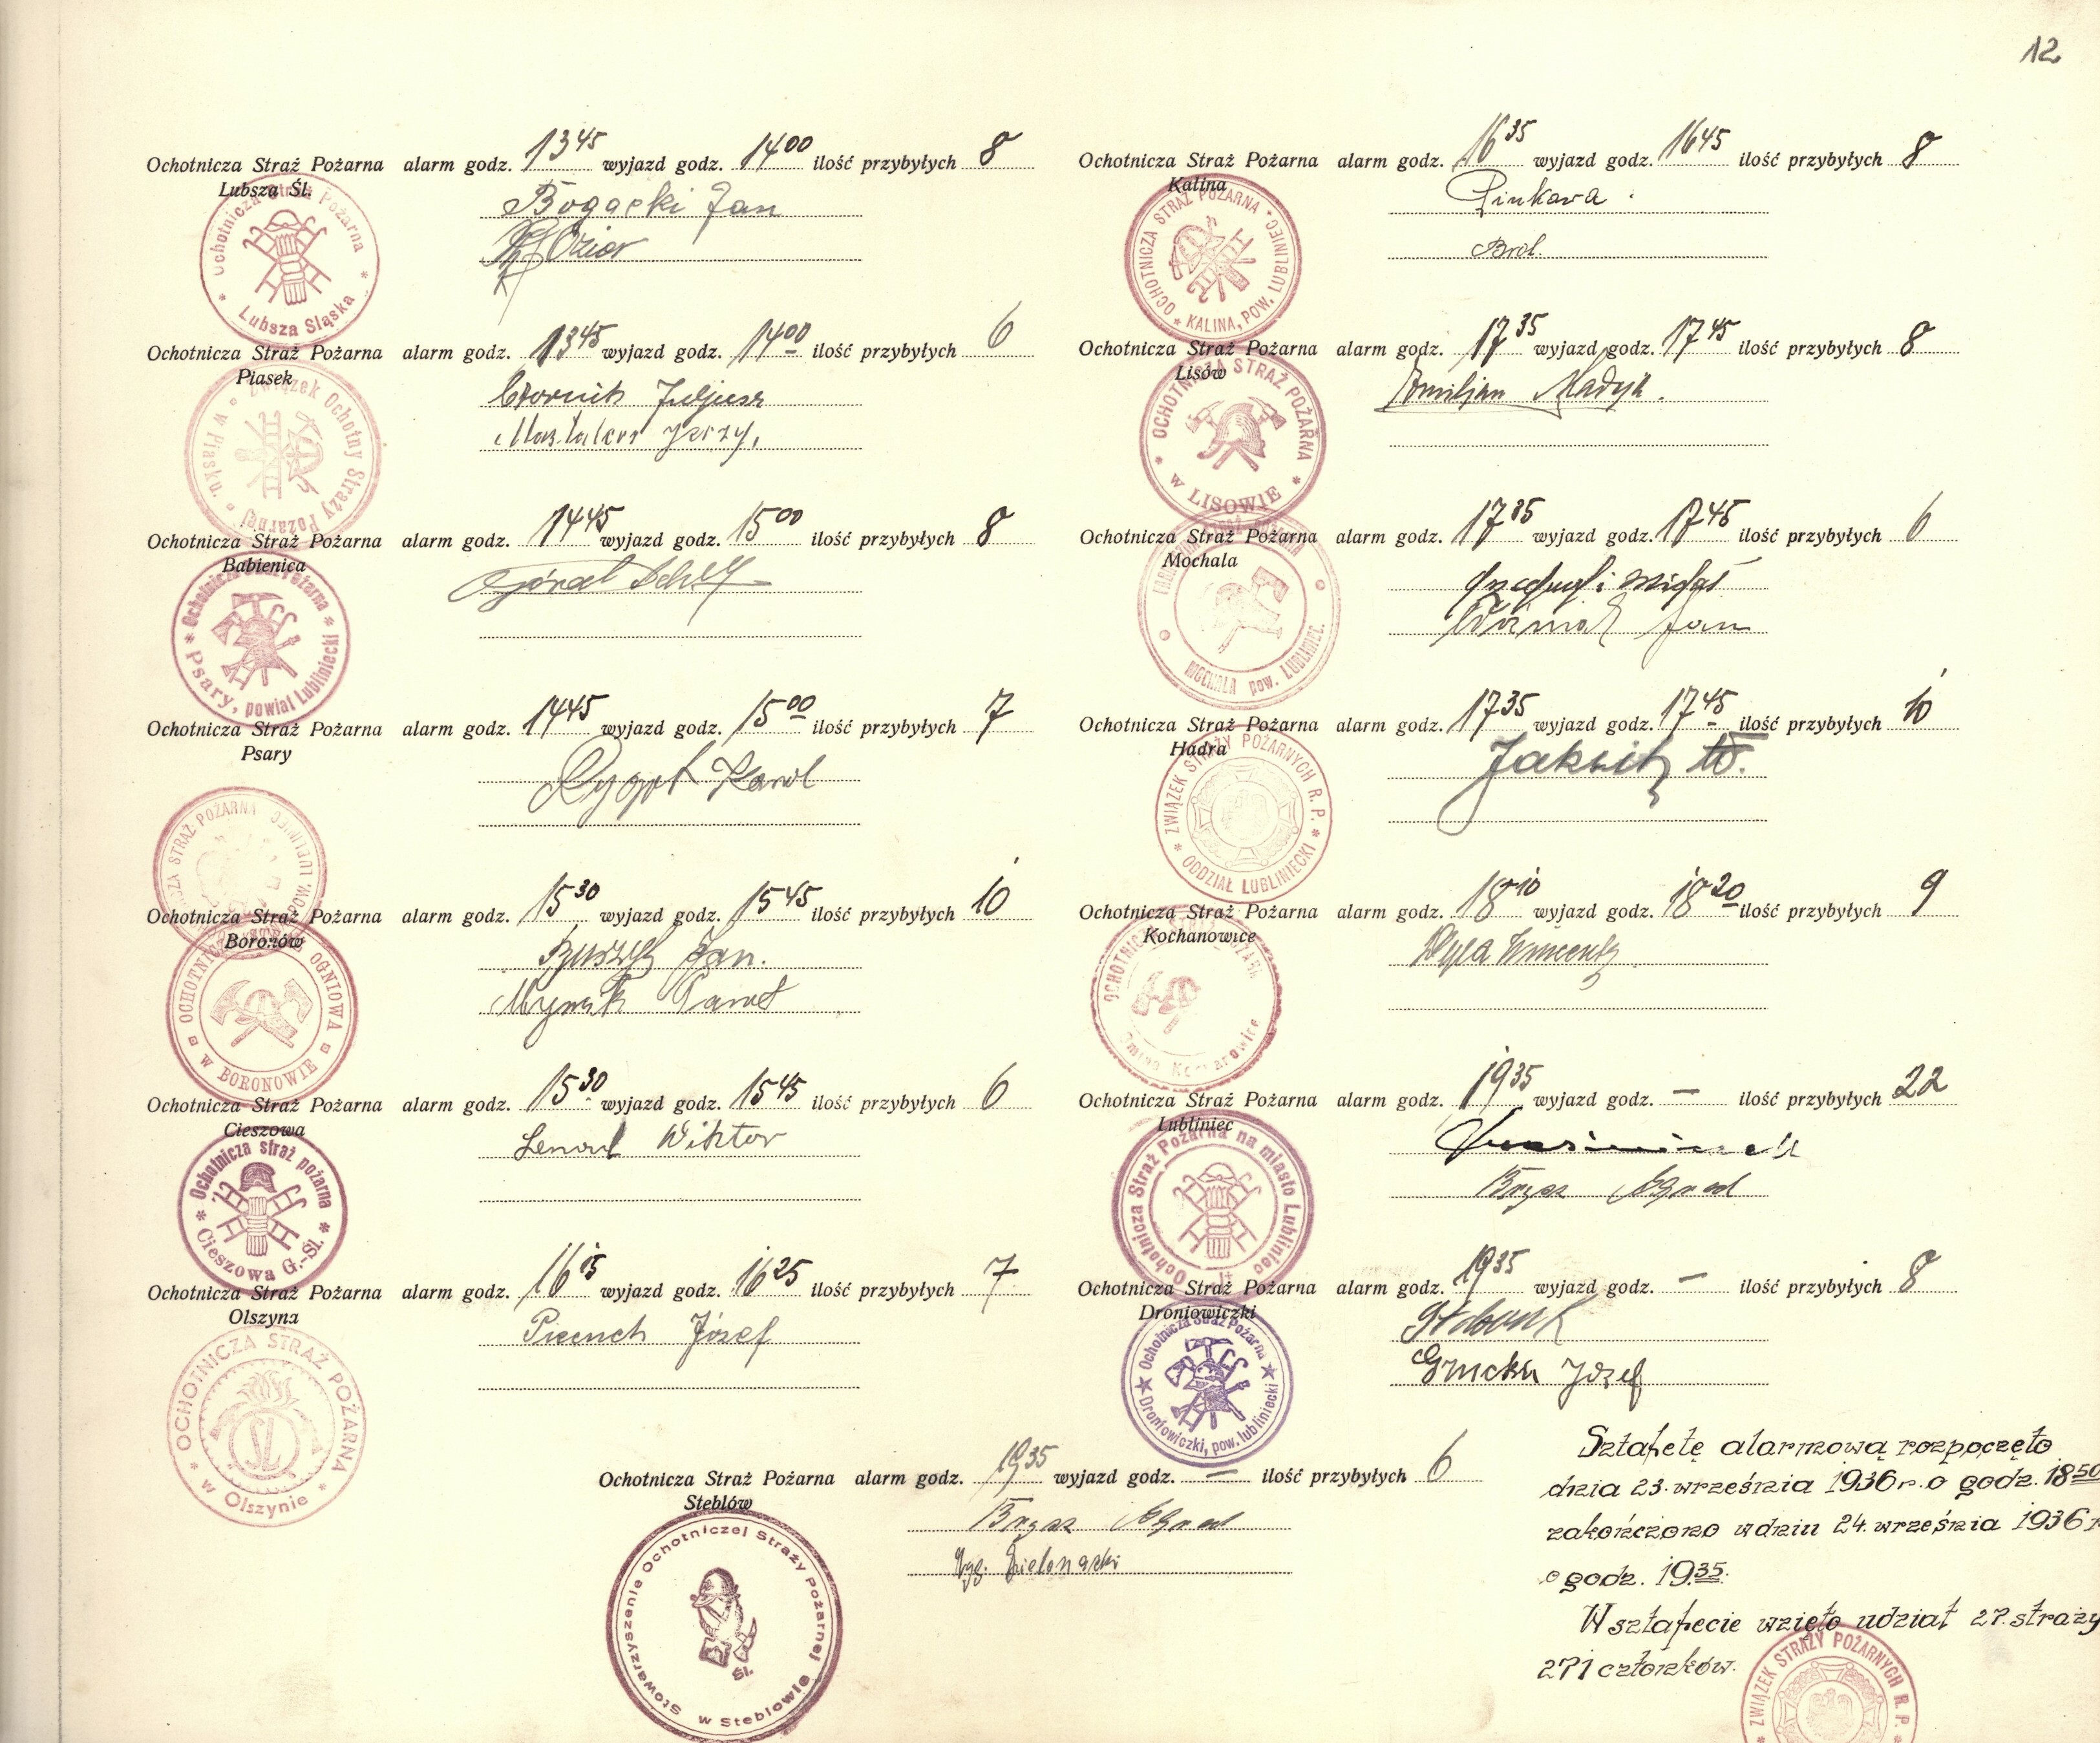 12
Ochotnicza Straż Pożarna alarm godz. 13 45 wyjazd godz. 14 00 ilość przybyłych 8
Lubsza Śl.
Bogacki Jan
Ochotnicza Straż Pożarna
* Lubsza Śląska *
Ochotnicza Straż Pożarna alarm godz. 13 45 wyjazd godz. 14 00 ilość przybyłych 6
Piasek
Czornik Juljusz
Jerzy,
Związek Ochotny Straży Pożarnej w Piasku
Ochotnicza Straż Pożarna alarm godz. 14 45 wyjazd godz. 15 00 ilość przybyłych 8
Babienica
Góral
Ochotnicza Straż Pożarna
* Psary, powiat Lubliniecki *
Ochotnicza Straż Pożarna alarm godz. 14 45 wyjazd godz. 15 00 ilość przybyłych 7
Psary
Karol
STRAŻ POŻARNA
POW. LUBLINIEC
Ochotnicza Straż Pożarna alarm godz. 15 30 wyjazd godz. 15 45 ilość przybyłych 10
Boronów
Jan.
Paweł
OCHOTNICZA STRAŻ OGNIOWA
W BORONOWIE
Ochotnicza Straż Pożarna alarm godz. 15 30 wyjazd godz. 15 45 ilość przybyłych 6
Cieszowa
Lenart Wiktor
Ochotnicza straż pożarna
* Cieszowa G.-Śl. *
Ochotnicza Straż Pożarna alarm godz. 16 15 wyjazd godz. 16 25 ilość przybyłych 7
Olszyna
Józef
OCHOTNICZA STRAŻ POŻARNA
* w Olszynie *
Ochotnicza Straż Pożarna alarm godz. 16 35 wyjazd godz. 16 45 ilość przybyłych 8
Kalina
Pinkawa
Brol.
OCHOTNICZA STRAŻ POŻARNA
* KALINA, POW. LUBLINIEC *
Ochotnicza Straż Pożarna alarm godz. 17 35 wyjazd godz. 17 45 ilość przybyłych 8
Lisów
Emiljan Madyk.
OCHOTNICZA STRAŻ POŻARNA
* w LISOWIE *
Ochotnicza Straż Pożarna alarm godz. 17 35 wyjazd godz. 17 45 ilość przybyłych 6
Mochala
Jan
MOCHALA pow. LUBLINIEC.
Ochotnicza Straż Pożarna alarm godz. 17 35 wyjazd godz. 17 45 ilość przybyłych 10
Hadra
ZWIĄZEK STRAŻY POŻARNYCH R. P.
* ODDZIAŁ LUBLINIECKI *
Ochotnicza Straż Pożarna alarm godz. 18 10 wyjazd godz. 18 20 ilość przybyłych 9
Kochanowice
Wincenty
OCHOTNICZA STRAŻ POŻARNA
Gmina Kochanowice
Ochotnicza Straż Pożarna alarm godz. 19 35 wyjazd godz. — ilość przybyłych 22
Lubliniec
Ochotnicza Straż Pożarna na miasto Lubliniec
Ochotnicza Straż Pożarna alarm godz. 19 35 wyjazd godz. — ilość przybyłych 8
Droniowiczki
Józef
Ochotnicza Straż Pożarna
★ Droniowiczki, pow. lubliniecki ★
Ochotnicza Straż Pożarna alarm godz. 19 35 wyjazd godz. — ilość przybyłych 6
Steblów
Zielonacki
Stowarzyszenie Ochotniczej Straży Pożarnej
Śl.
w Steblowie
Sztafetę alarmową rozpoczęto
dnia 23. września 1936 r. o godz. 18 50
zakończono w dniu 24. września 1936 r
o godz. 19 35.
W sztafecie wzięło udział 27. straży
271 członków.
ZWIĄZEK STRAŻY POŻARNYCH R. P.